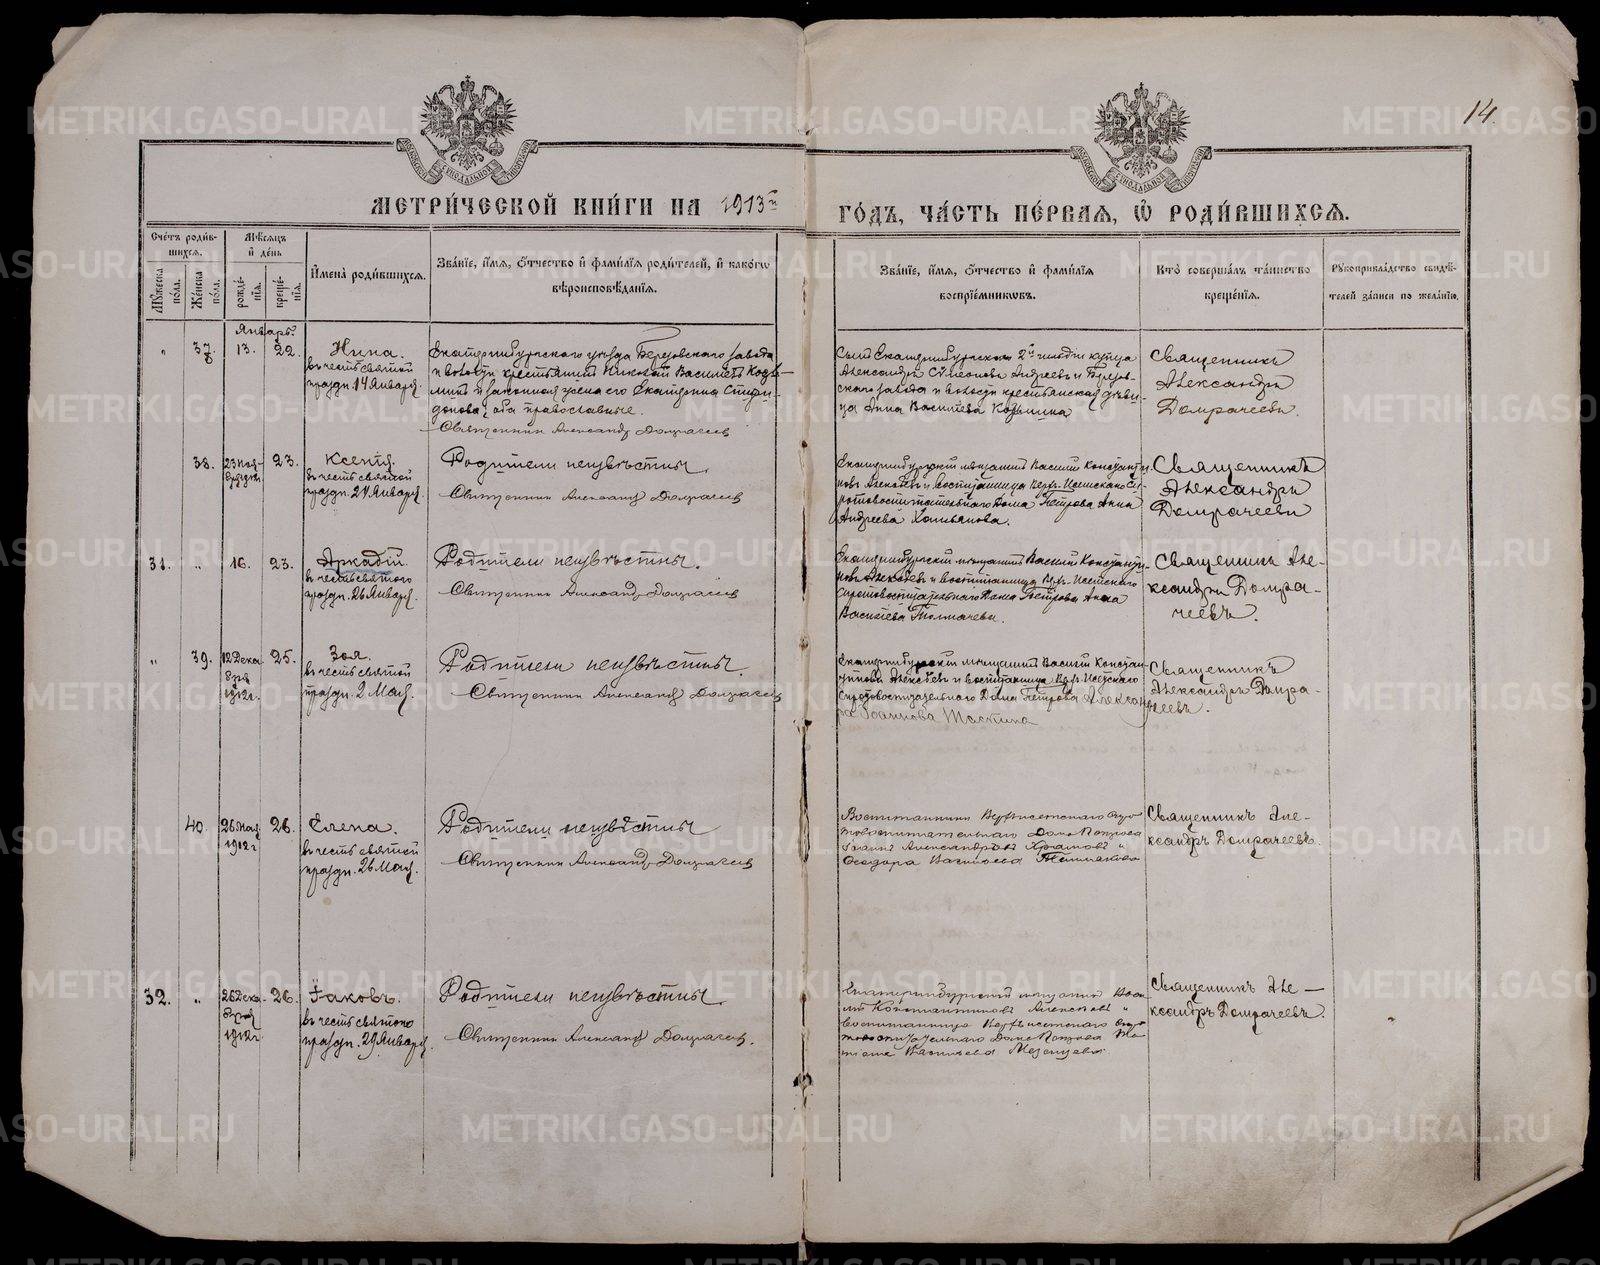 14
МЕТРИ́ЧЕСКОЙ КНИ́ГИ НА 1913й ГО́ДЪ, ЧА́СТЬ ПЕ́РВАЯ, Ѡ҆ РОДИ́ВШИХСЯ.
Сче́тъ роди́в-
шихся.
Му́жеска по́ла.
Же́нска по́ла.
Мѣ́сяцъ
и҆ де́нь
рожде́-
нїя.
креще́-
нїя.
И҆мена̀ роди́вшихся.
Зва́нїе, и҆́мя, ѻ҆́тчество и҆ фами́лїя роди́телей, и҆ како́гѡ
вѣроисповѣ́данїя.
Зва́нїе, и҆́мя, ѻ҆́тчество и҆ фами́лїя
воспрїе́мниковъ.
Кто̀ соверша́лъ та́инство
креще́нїя.
Рꙋкоприкла́дство свидѣ́-
телей за́писи по жела́нїю.
Январь.
„ 37 13. 22. Нина.
въ честь святой
праздн. 14 Января.
Екатеринбургскаго уѣзда Березовскаго завода
и волости крестьянинъ Николай Васильевъ Козь-
минъ и законная жена его Екатерина Спири-
донова, оба православные.
Священникъ Александръ Домрачеевъ
Сынъ Екатеринбургскаго 2й гильдіи купца
Александръ Симеоновъ Андреевъ и Березов-
скаго завода и волости крестьянская дѣви-
ца Анна Васильева Козьмина
Священникъ
Александръ
Домрачеевъ.
38. 23 Ноя-
23. Ксенія.
въ честь святой
праздн. 24 Января.
Родители неизвѣстны.
Священникъ Александръ Домрачеевъ
Екатеринбургскій мѣщанинъ Василій Константи-
новъ Алексѣевъ и воспитанница Верх-Исетскаго Си-
ротовоспитательнаго Дома Петрова Анна
Андреева
Священникъ
Александръ
Домрачеевъ
31. „ 16. 23. Аркадій.
въ честь святого
праздн. 26 Января.
Родители неизвѣстны.
Священникъ Александръ Домрачеевъ
Екатеринбургскій мѣщанинъ Василій Константи-
новъ Алексѣевъ и воспитанница Верх-Исетскаго
Сиротовоспитательнаго Дома Петрова Анна
Васильева Толмачева.
Священникъ Але-
ксандръ Домра-
чеевъ.
„ 39. 12 Дека-
бря
1912 г.
25. Зоя.
въ честь святой
праздн. 2 Мая.
Родители неизвѣстны
Священникъ Александръ Домрачеевъ
Екатеринбургскій мѣщанинъ Василій Констан-
тиновъ Алексѣевъ и воспитанница Верх-Исетскаго
Сиротовоспитательнаго Дома Петрова Александ-
ра Іоаннова
Священникъ
Александръ Домра-
чеевъ.
40. 26 Ноя.
1912 г
26. Елена.
въ честь святой
праздн. 26 Мая.
Родители неизвѣстны
Священникъ Александръ Домрачеевъ
Воспитанники Верхисетскаго Сиро
товоспитательнаго Дома Петрова
Іоаннъ Александровъ Храмовъ и
Феодора Васильева
Священникъ Але-
ксандръ Домрачеевъ.
32. „ 26 Дека-
бря
1912 г.
26. Іаковъ.
въ честь святого
праздн. 29 Января.
Родители неизвѣстны
Священникъ Александръ Домрачеевъ.
Екатеринбургскій мѣщанинъ Васи
лій Константиновъ Алексѣевъ и
воспитанница Верхъисетскаго Сиро
товоспитательнаго Дома Петрова
Васильева
Священникъ Але-
ксандръ Домрачеевъ.
METRIKI.GASO-URAL.RU